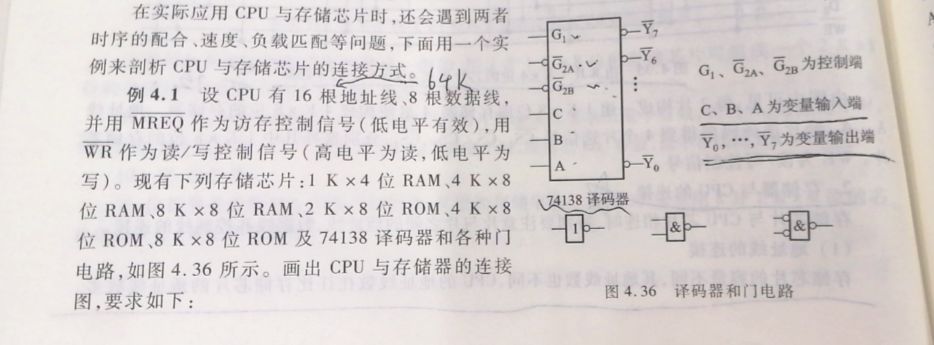 在实际应用 CPU 与存储芯片时,还会遇到两者
时序的配合、速度、负载匹配等问题,下面用一个实
例来剖析 CPU 与存储芯片的连接方式。
64K
例 4.1 设 CPU 有 16 根地址线、8 根数据线,
并用 M̅R̅E̅Q̅ 作为访存控制信号(低电平有效),用
W̅R̅ 作为读/写控制信号(高电平为读,低电平为
写)。现有下列存储芯片:1 K×4 位 RAM、4 K×8
位 RAM、8 K×8 位 RAM、2 K×8 位 ROM、4 K×8
位 ROM、8 K×8 位 ROM 及 74138 译码器和各种门
电路,如图 4.36 所示。画出 CPU 与存储器的连接
图,要求如下:
G₁ Y̅₇
G̅₂A Y̅₆
G̅₂B
C
B
A Y̅₀
74138 译码器
G₁、G̅₂A、G̅₂B 为控制端
C、B、A 为变量输入端
Y̅₀,…,Y̅₇ 为变量输出端
1 & &
图 4.36 译码器和门电路